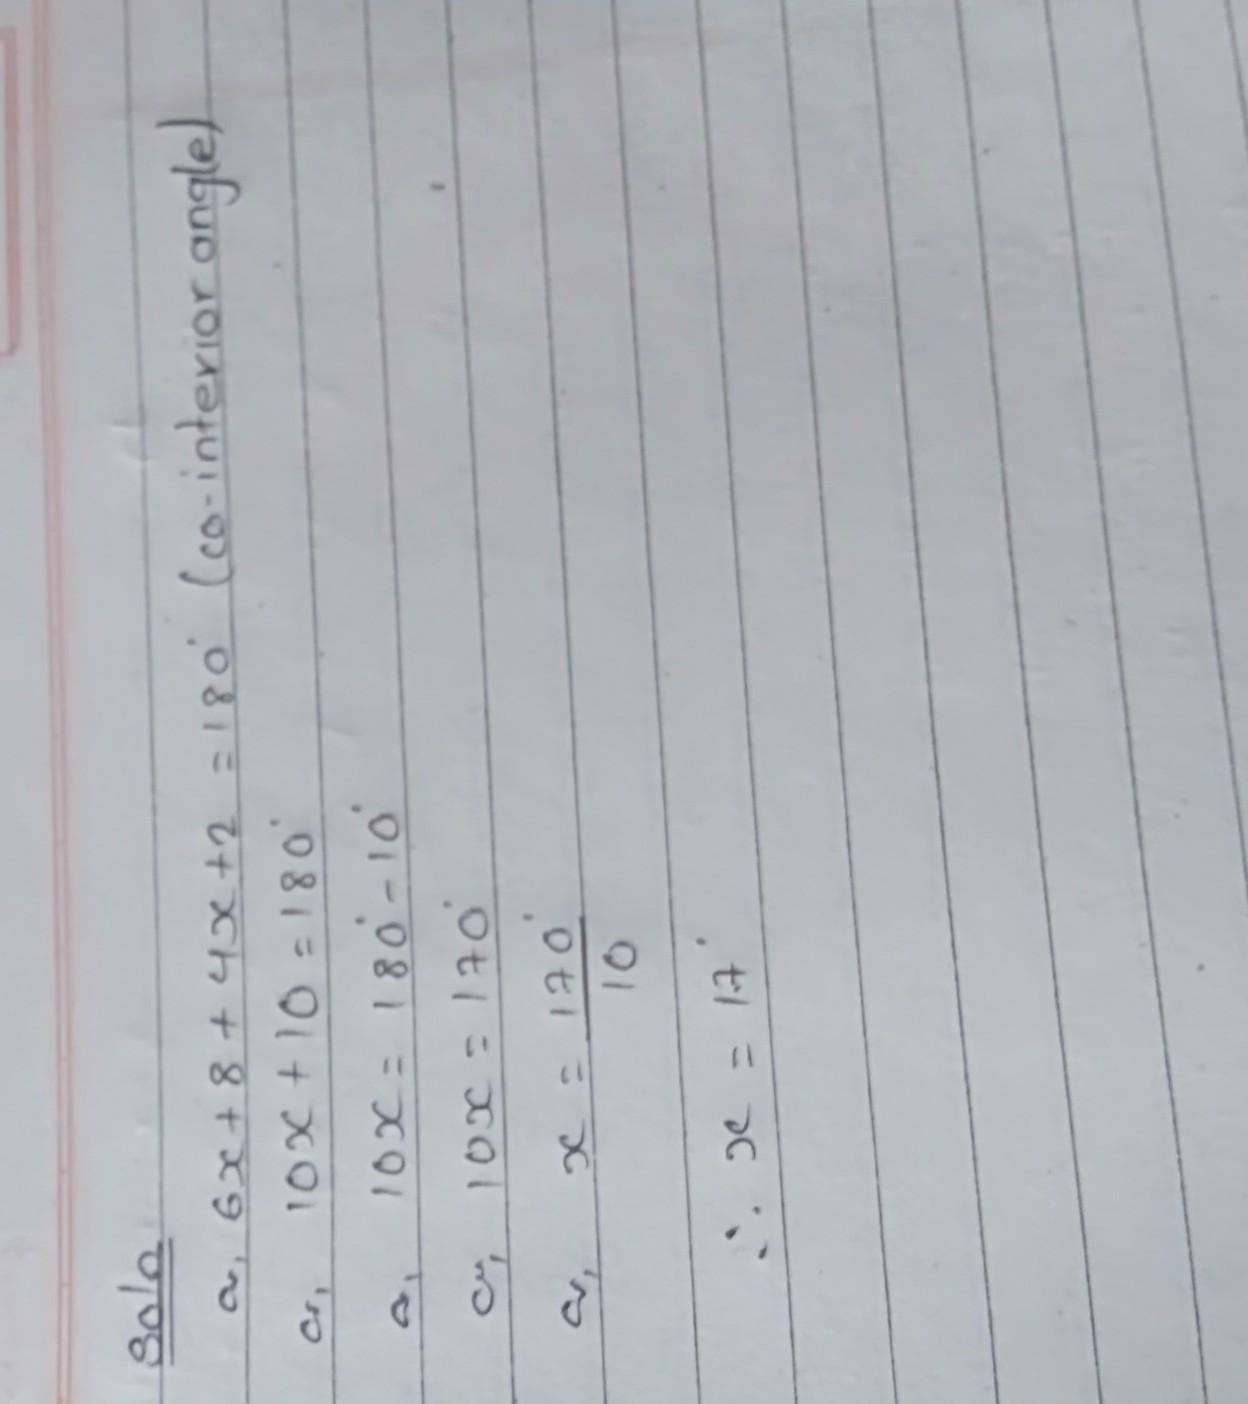 Soln
or, 6x + 8 + 4x + 2 = 180° (co-interior angle)
or, 10x + 10 = 180°
or, 10x = 180° - 10°
or, 10x = 170°
or, x = 170°
10
∴ x = 17°